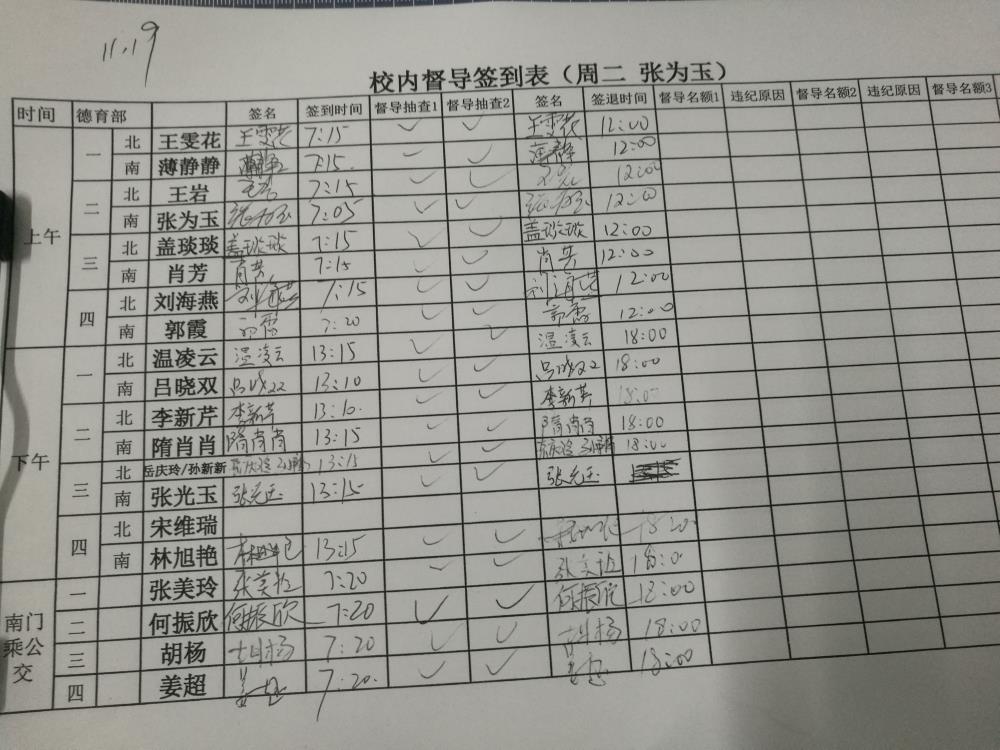 11.19
校内督导签到表（周二 张为玉）
时间 德育部 签名 签到时间 督导抽查1 督导抽查2 签名 签退时间 督导名额1 违纪原因 督导名额2 违纪原因 督导名额3
上午 一 北 王雯花 王雯花 7:15 ✓ ✓ 王雯花 12:00
南 薄静静 7:15. ✓ ✓ 薄静 12:00
二 北 王岩 王岩 7:15 ✓ ✓ 12:00
南 张为玉 张为玉 7:05 ✓ ✓ 张为玉 12:00
三 北 盖琰琰 盖琰琰 7:15 ✓ ✓ 盖琰琰 12:00
南 肖芳 肖芳 7:15 ✓ ✓ 肖芳 12:00
四 北 刘海燕 刘海燕 7:15 ✓ ✓ 刘海燕 12:00
南 郭霞 郭霞 7:20 ✓ ✓ 郭霞 12:00
下午 一 北 温凌云 温凌云 13:15 ✓ ✓ 温凌云 18:00
南 吕晓双 吕晓双 13:10 ✓ ✓ 吕晓双 18:00
二 北 李新芹 李新芹 13:10. ✓ ✓ 李新芹 18:00
南 隋肖肖 隋肖肖 13:15 ✓ ✓ 隋肖肖 18:00
三 北 岳庆玲/孙新新 岳庆玲 13:15 ✓ ✓ 岳庆玲 18:00
南 张光玉 张光玉 13:15 ✓ ✓ 张光玉
四 北 宋维瑞
南 林旭艳 林旭艳 13:15 ✓ ✓ 林旭艳 18:20
南门乘公交 一 张美玲 张美玲 7:20 ✓ ✓ 张美玲 18:0
二 何振欣 何振欣 7:20 ✓ ✓ 何振欣 18:00
三 胡杨 胡杨 7:20 ✓ ✓ 胡杨 18:00
四 姜超 姜超 7:20. ✓ ✓ 姜超 18:00